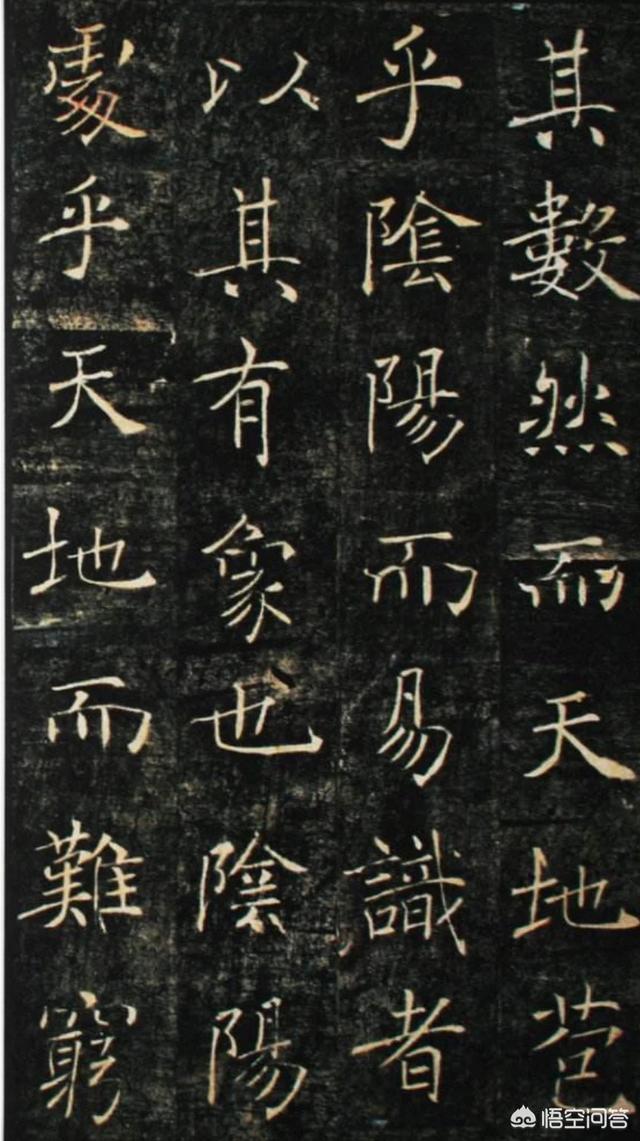 其數然而天地苞
乎陰陽而易識者
以其有象也陰陽
處乎天地而難窮
悟空问答